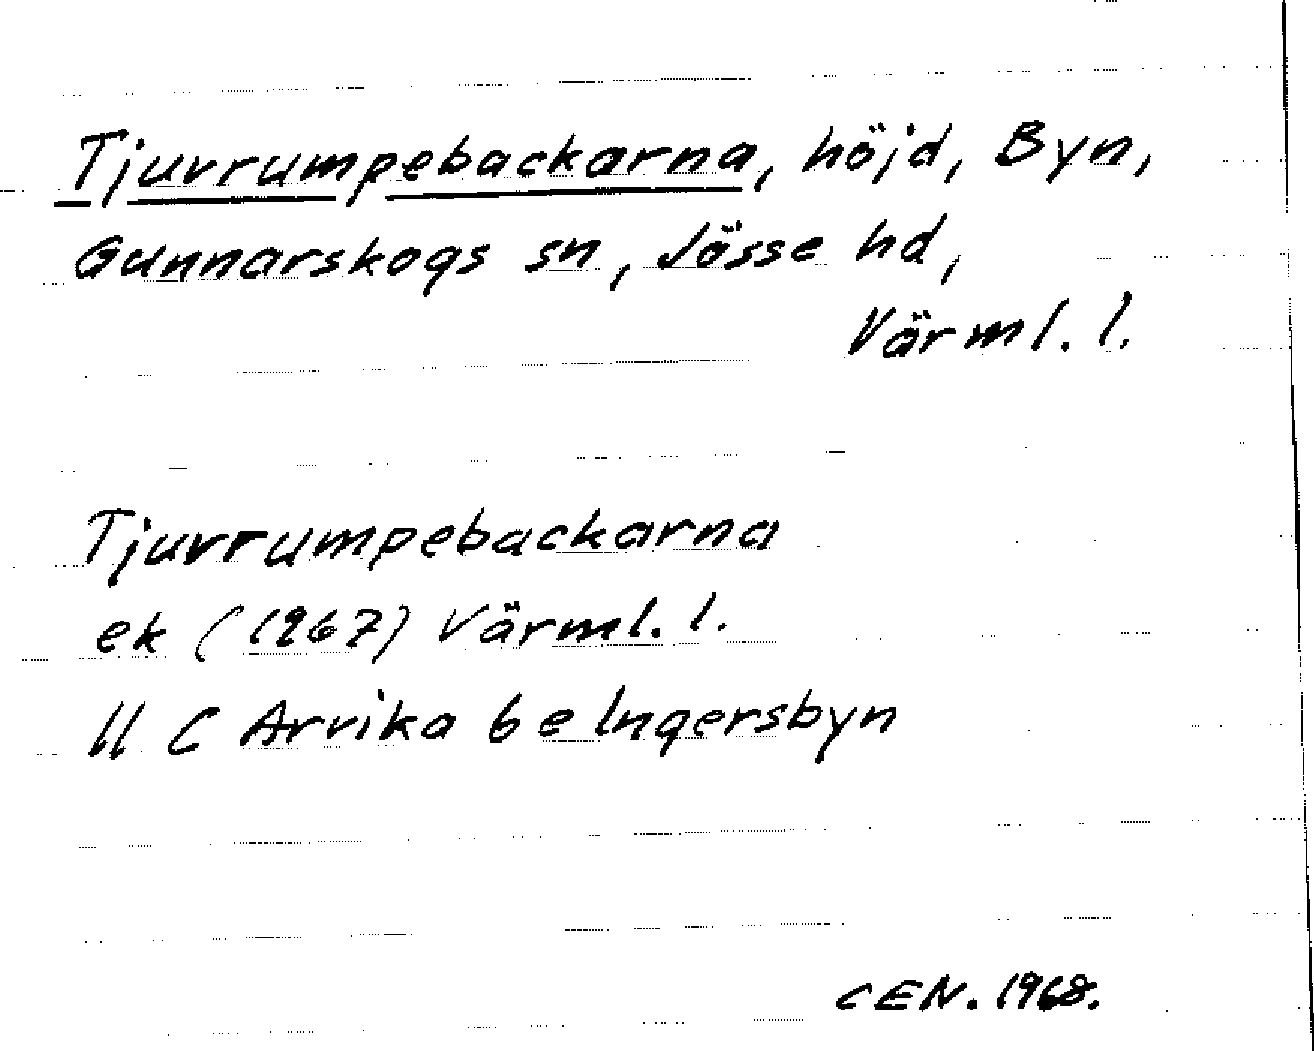 Tjuvrumpebackarna, höjd, Byn,
Gunnarskogs sn, Jösse hd,
Värml. l.
Tjuvrumpebackarna
ek (1967) Värml. l.
11 C Arvika 6e Ingersbyn
CEN. 1968.